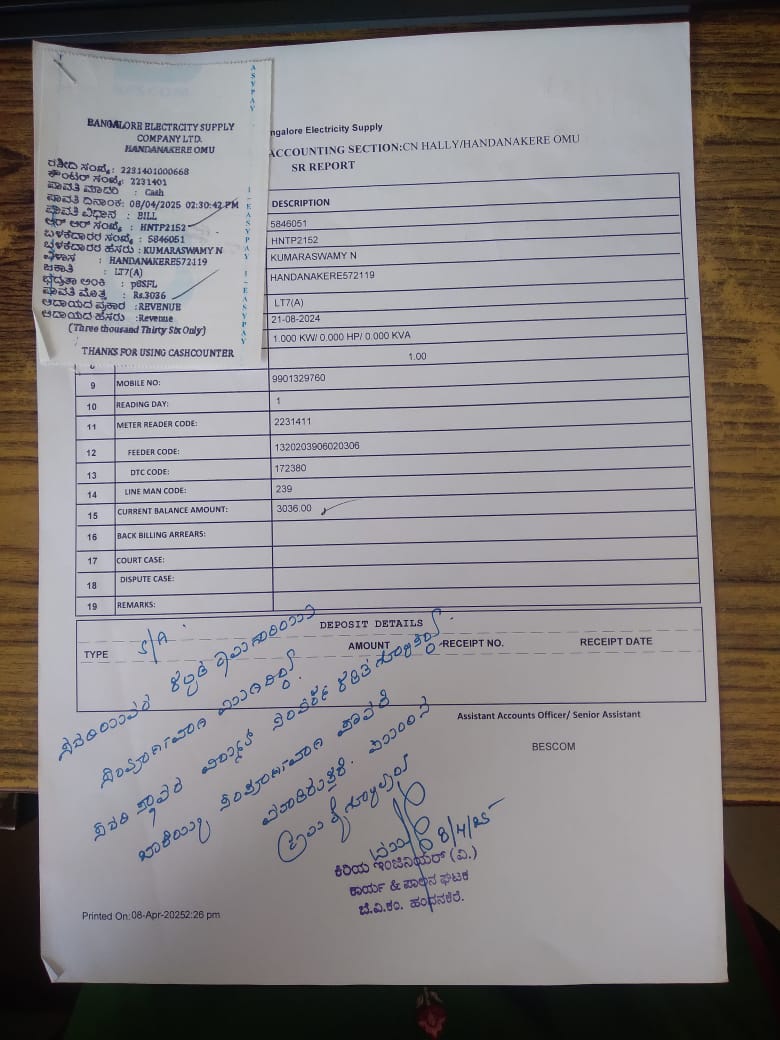 BANGALORE ELECTRCITY SUPPLY
COMPANY LTD.
HANDANAKERE OMU
ರಶೀದಿ ಸಂಖ್ಯೆ: 2231401000668
ಕೌಂಟರ್ ಸಂಖ್ಯೆ: 2231401
ಪಾವತಿ ಮಾದರಿ : Cash
ಪಾವತಿ ದಿನಾಂಕ: 08/04/2025 02:30:42 PM
ಪಾವತಿ ವಿಧಾನ : BILL
ಆರ್ ಆರ್ ಸಂಖ್ಯೆ : HNTP2152
ಬಳಕೆದಾರರ ಸಂಖ್ಯೆ : 5846051
ಬಳಕೆದಾರರ ಹೆಸರು : KUMARASWAMY N
ವಿಳಾಸ : HANDANAKERE572119
ಜಕಾತಿ : LT7(A)
ಭದ್ರತಾ ಅಂಕಿ : pBSFL
ಪಾವತಿ ಮೊತ್ತ : Rs.3036
ಆದಾಯದ ಪ್ರಕಾರ :REVENUE
ಆದಾಯದ ಹೆಸರು :Revenue
(Three thousand Thirty Six Only)
THANKS FOR USING CASHCOUNTER
ngalore Electricity Supply
ACCOUNTING SECTION:CN HALLY/HANDANAKERE OMU
SR REPORT
DESCRIPTION
5846051
HNTP2152
KUMARASWAMY N
HANDANAKERE572119
LT7(A)
21-08-2024
1.000 KW/ 0.000 HP/ 0.000 KVA
1.00
9 MOBILE NO: 9901329760
10 READING DAY: 1
11 METER READER CODE: 2231411
12 FEEDER CODE: 1320203906020306
13 DTC CODE: 172380
14 LINE MAN CODE: 239
15 CURRENT BALANCE AMOUNT: 3036.00
16 BACK BILLING ARREARS:
17 COURT CASE:
18 DISPUTE CASE:
19 REMARKS:
DEPOSIT DETAILS
TYPE AMOUNT RECEIPT NO. RECEIPT DATE
Assistant Accounts Officer/ Senior Assistant
BESCOM
8/4/25
ಕಿರಿಯ ಇಂಜಿನಿಯರ್ (ವಿ.)
ಕಾರ್ಯ & ಪಾಲನ ಘಟಕ
ಬೆ.ವಿ.ಕಂ. ಹಂದನಕೆರೆ.
Printed On:08-Apr-20252:26 pm